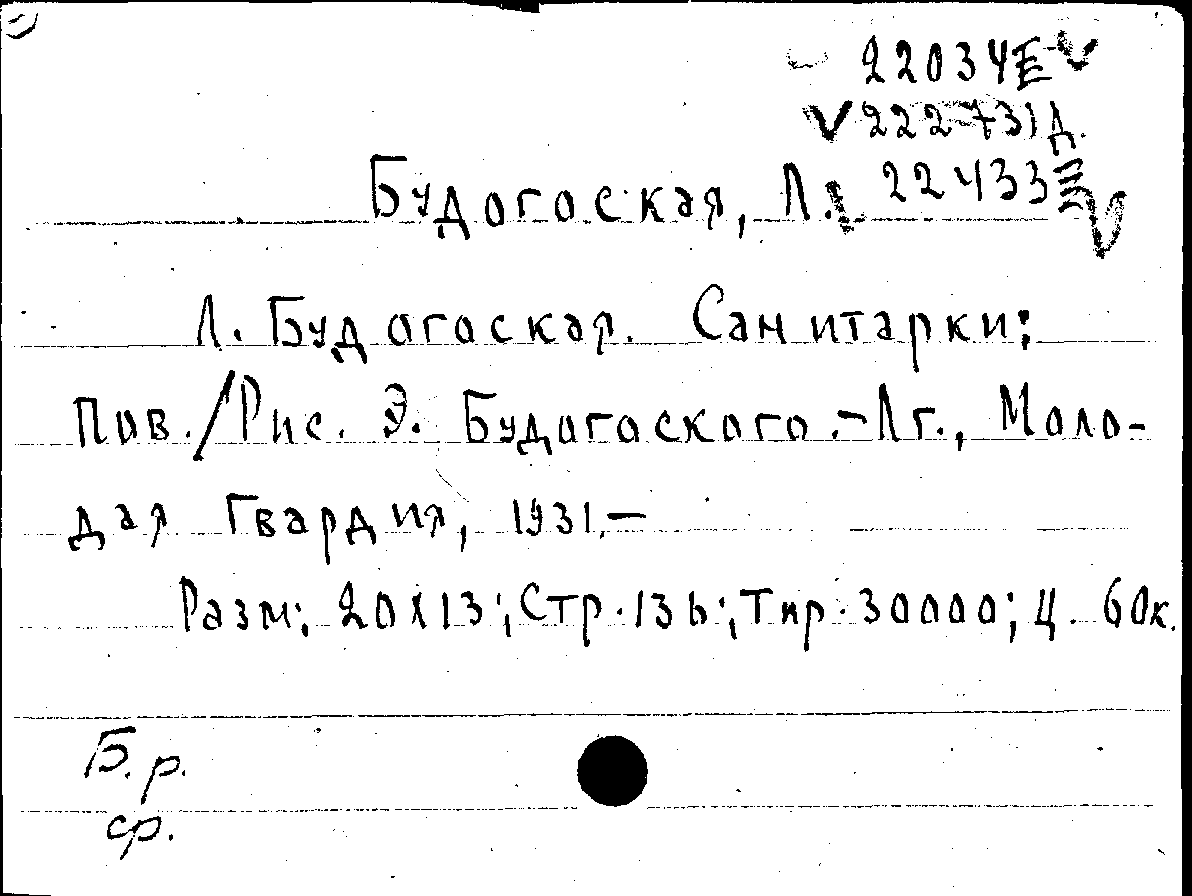 22034Е
V 222731д.
Будогоская, Л. 22433Е
Л. Будогоская. Санитарки:
Пов./Рис. Э. Будогоского.-Лг., Моло-
дая Гвардия, 1931.—
Разм: 20х13; Стр. 136; Тир. 30000; Ц. 60к.
Б. р.
ср.